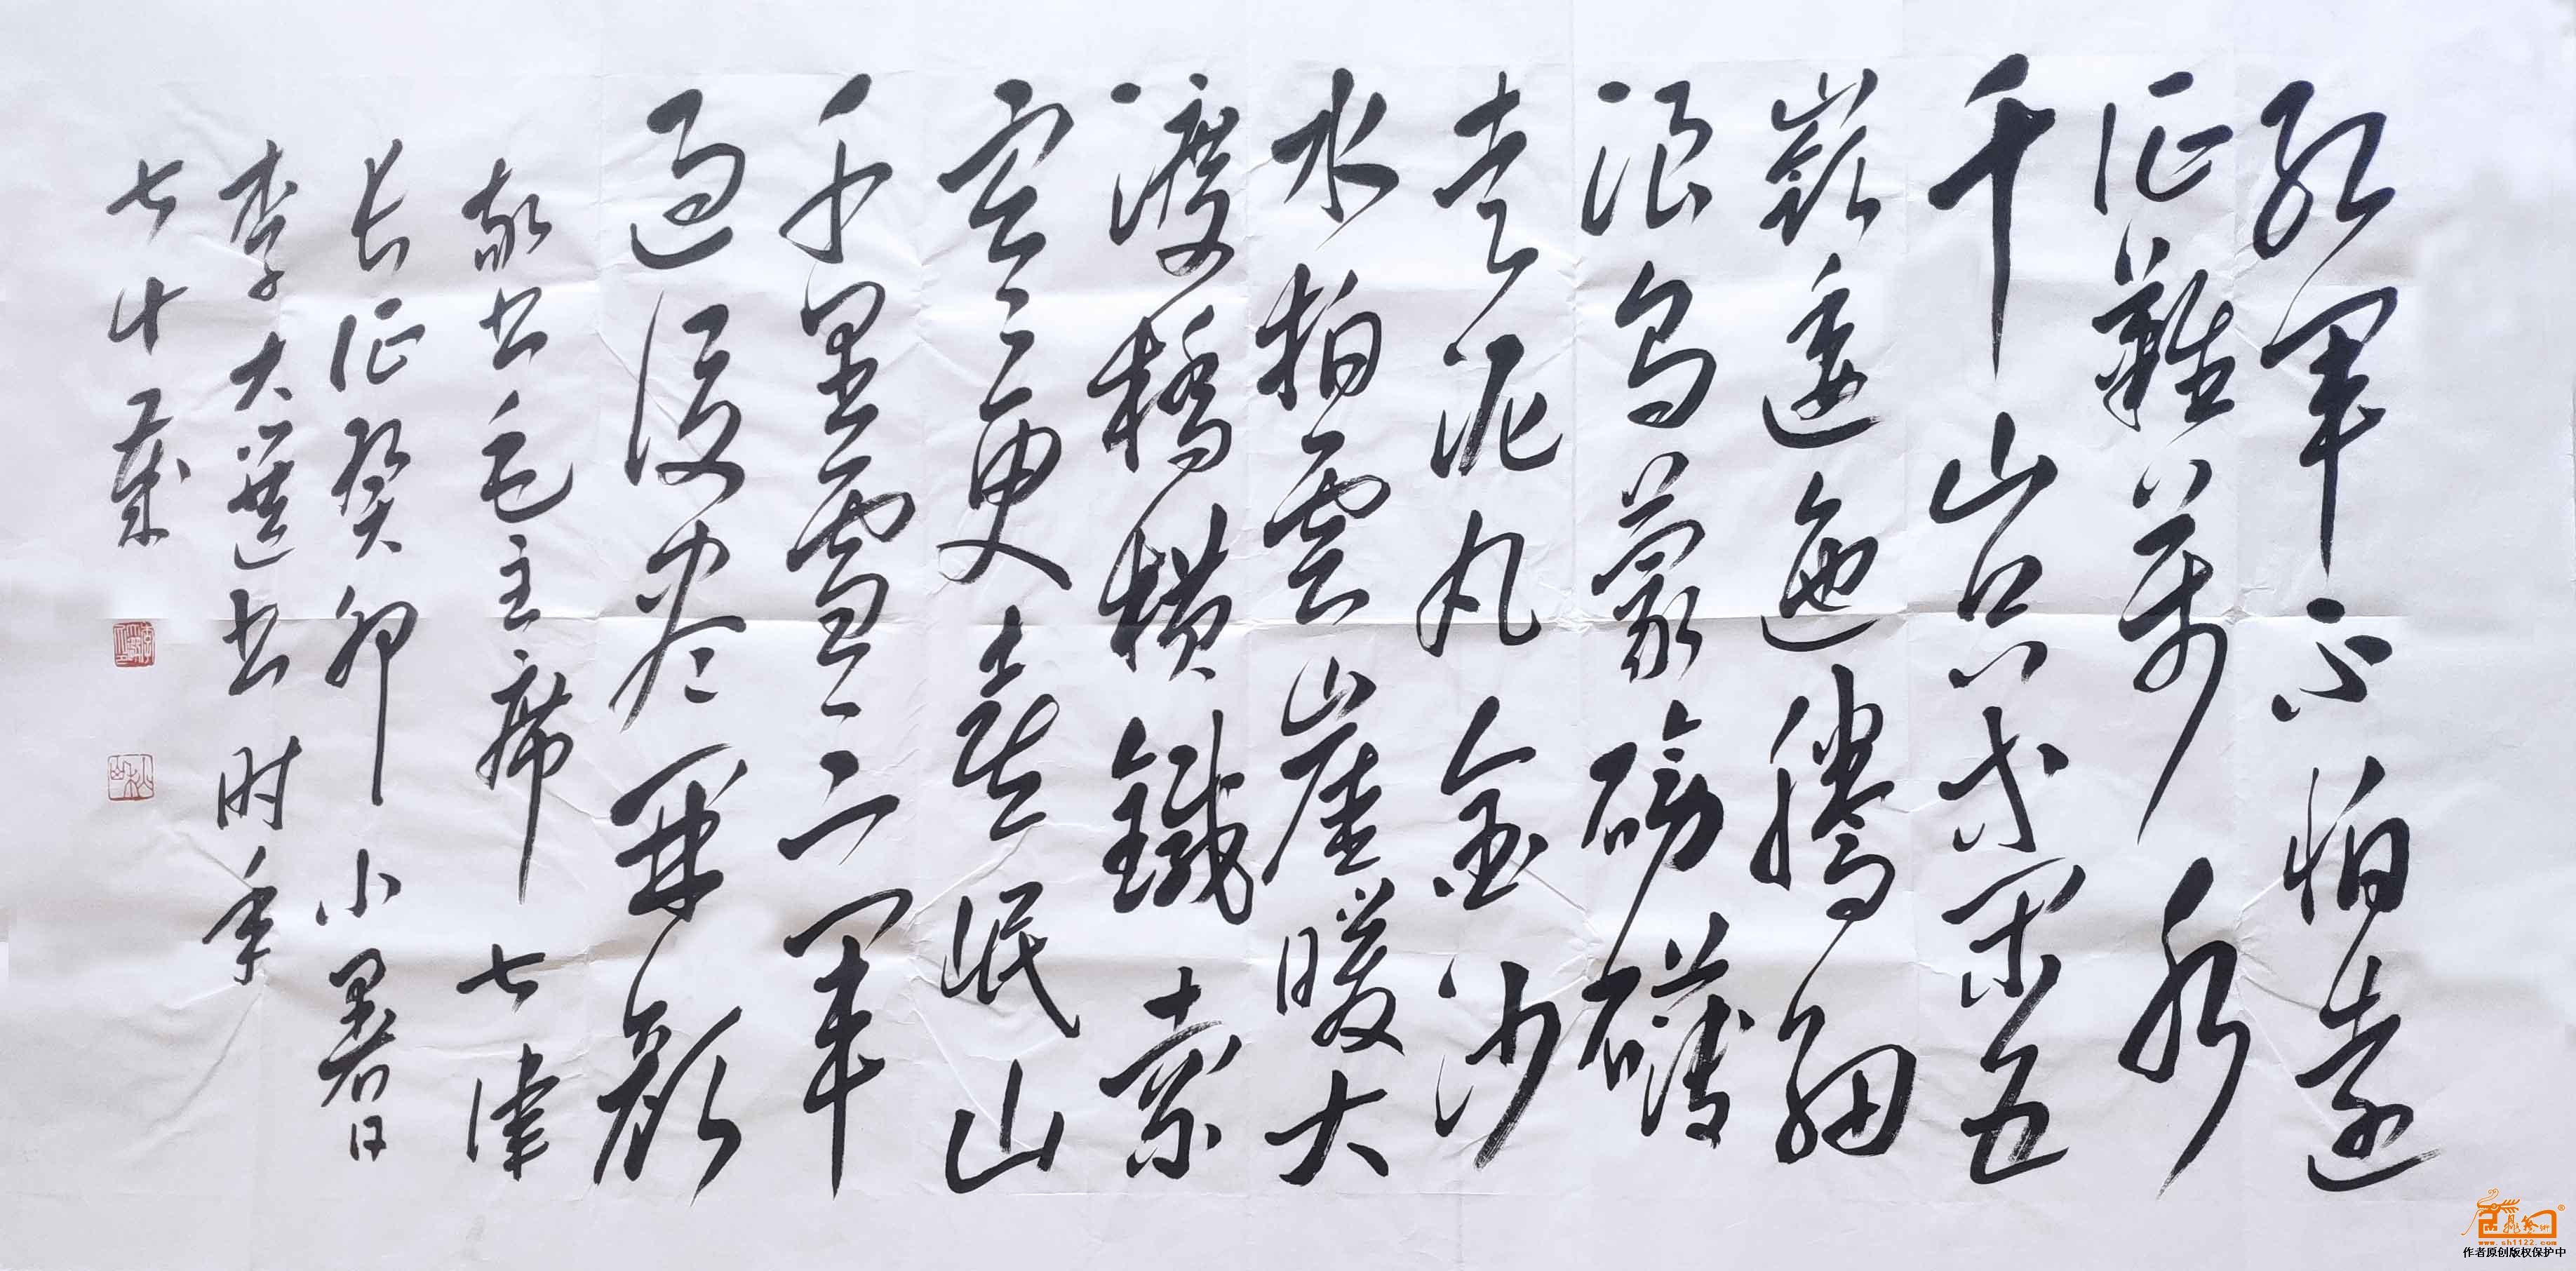 红軍不怕遠
征難萬水
千山只等閑五
嶺逶迤騰細
浪烏蒙磅礴
走泥丸金沙
水拍雲崖暖大
渡橋横鐵索
寒更喜岷山
千里雪三軍
过後尽開顔
敬书毛主席七律
长征癸卯小暑日
李大书时年
七十歲
www.sh1122.com
作者原创版权保护中